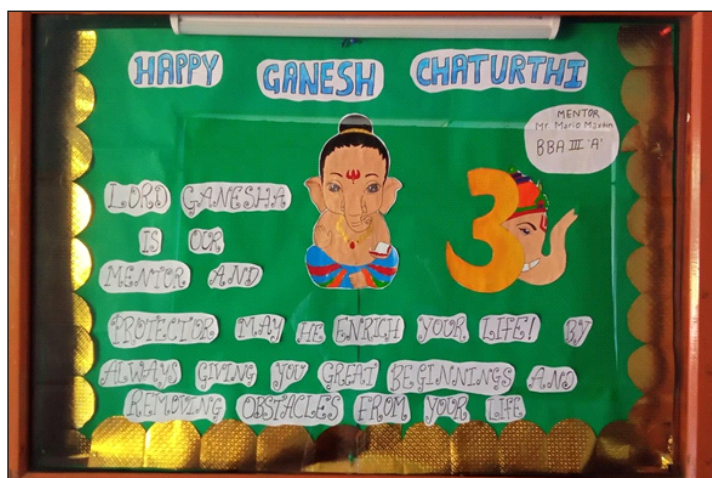 HAPPY GANESH CHATURTHI
MENTOR
Mr. Mario Martin
BBA III 'A'
LORD GANESHA
IS OUR
MENTOR AND
PROTECTOR MAY HE ENRICH YOUR LIFE! BY
ALWAYS GIVING YOU GREAT BEGINNINGS AND
REMOVING OBSTACLES FROM YOUR LIFE